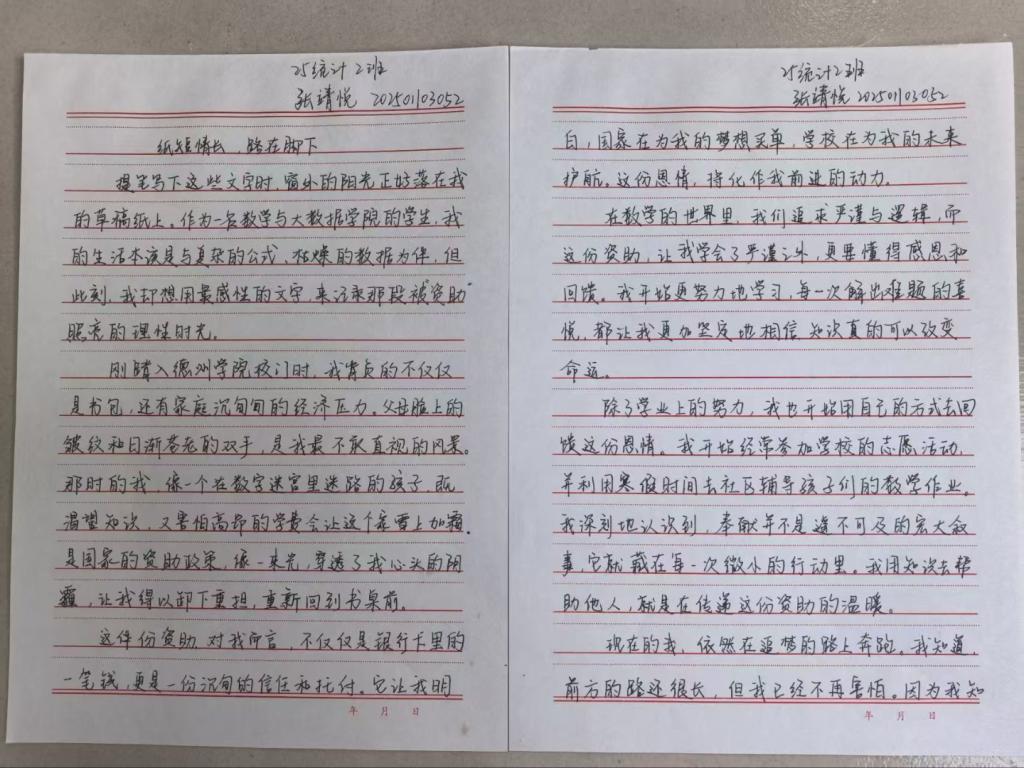 25统计2班
张靖悦 202501103052
纸短情长，路在脚下
提笔写下这些文字时，窗外的阳光正好落在我
的草稿纸上。作为一名数学与大数据学院的学生，我
的生活本该是与复杂的公式、枯燥的数据为伴，但
此刻，我却想用最感性的文字，来记录那段被"资助"
照亮的理性时光。
刚踏入德州学院校门时，我背负的不仅仅
是书包，还有家庭沉甸甸的经济压力。父母脸上的
皱纹和日渐苍老的双手，是我最不敢直视的风景。
那时的我，像一个在数字迷宫里迷路的孩子，既
渴望知识，又害怕高昂的学费会让这个家雪上加霜。
是国家的资助政策，像一束光，穿透了我心头的阴
霾，让我得以卸下重担，重新回到书桌前。
这件份资助，对我而言，不仅仅是银行卡里的
一笔钱，更是一份沉甸的信任和托付。它让我明
25统计2班
张靖悦 202501103052
白，国家在为我的梦想买单，学校在为我的未来
护航。这份恩情，将化作我前进的动力。
在数学的世界里，我们追求严谨与逻辑，而
这份资助，让我学会了严谨之外，更要懂得感恩和
回馈。我开始更努力地学习，每一次解出难题的喜
悦，都让我更加坚定地相信，知识真的可以改变
命运。
除了学业上的努力，我也开始用自己的方式去回
馈这份恩情。我开始经常参加学校的志愿活动，
并利用寒假时间去社区辅导孩子们的数学作业。
我深刻地认识到，奉献并不是遥不可及的宏大叙
事，它就藏在每一次微小的行动里。我用知识去帮
助他人，就是在传递这份资助的温暖。
现在的我，依然在追梦的路上奔跑。我知道，
前方的路还很长，但我已经不再害怕。因为我知
年 月 日
年 月 日